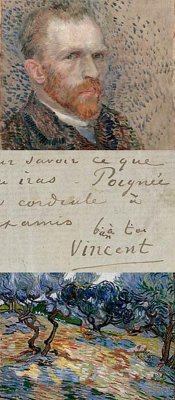 ur savoir ce que
u iras - Poignée
cordiale à
amis
b à toi
Vincent